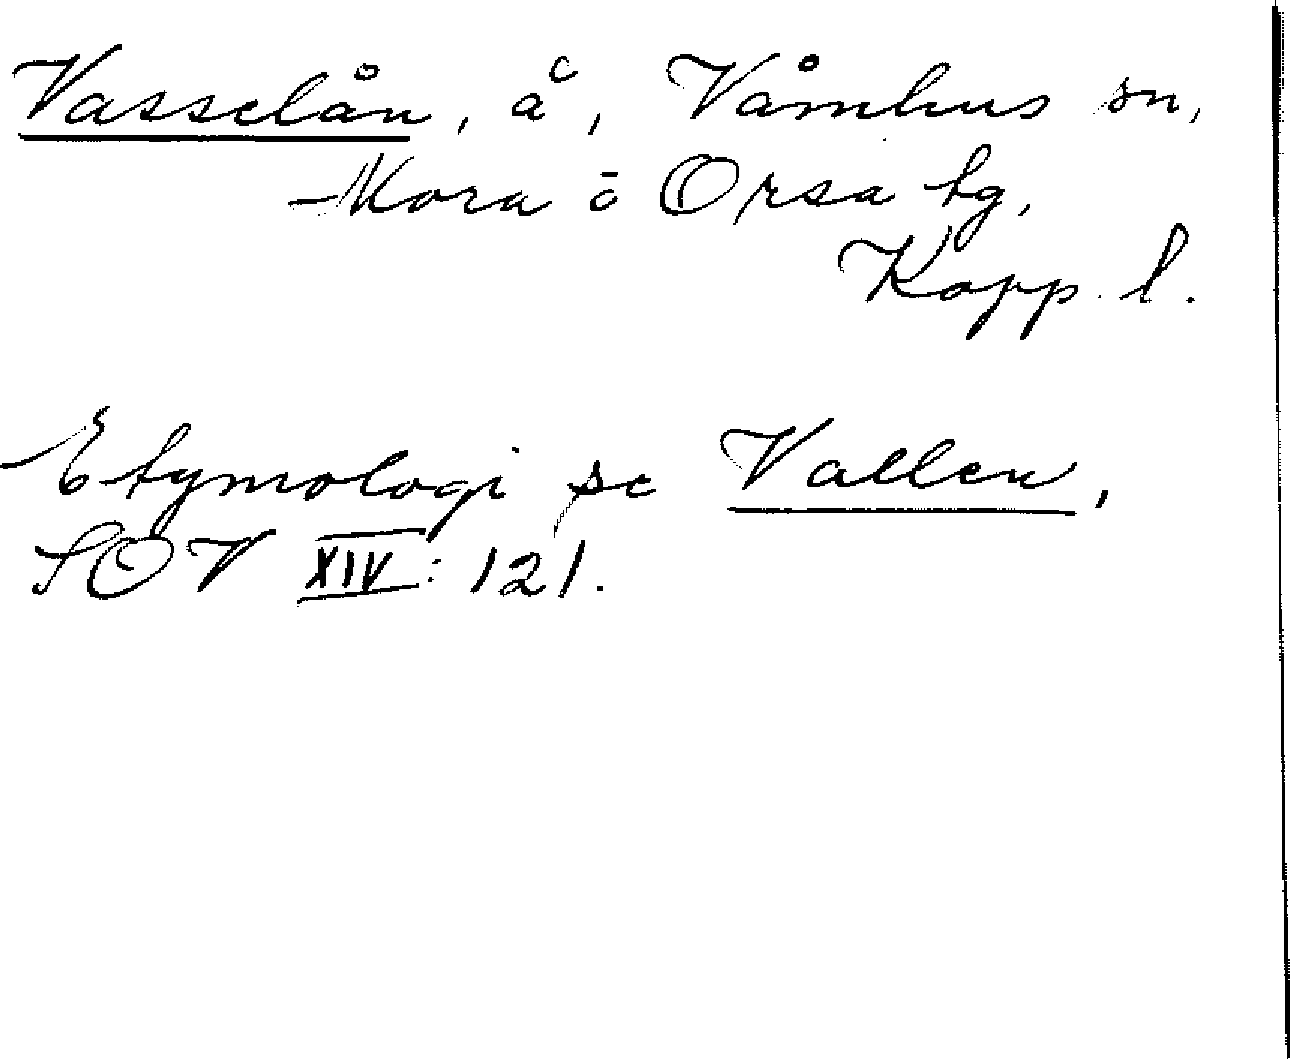 Vasselån, å, Våmhus sn,
Mora o Orsa tg,
Kopp. l.
Etymologi se Vallen,
SOV XIV: 121.